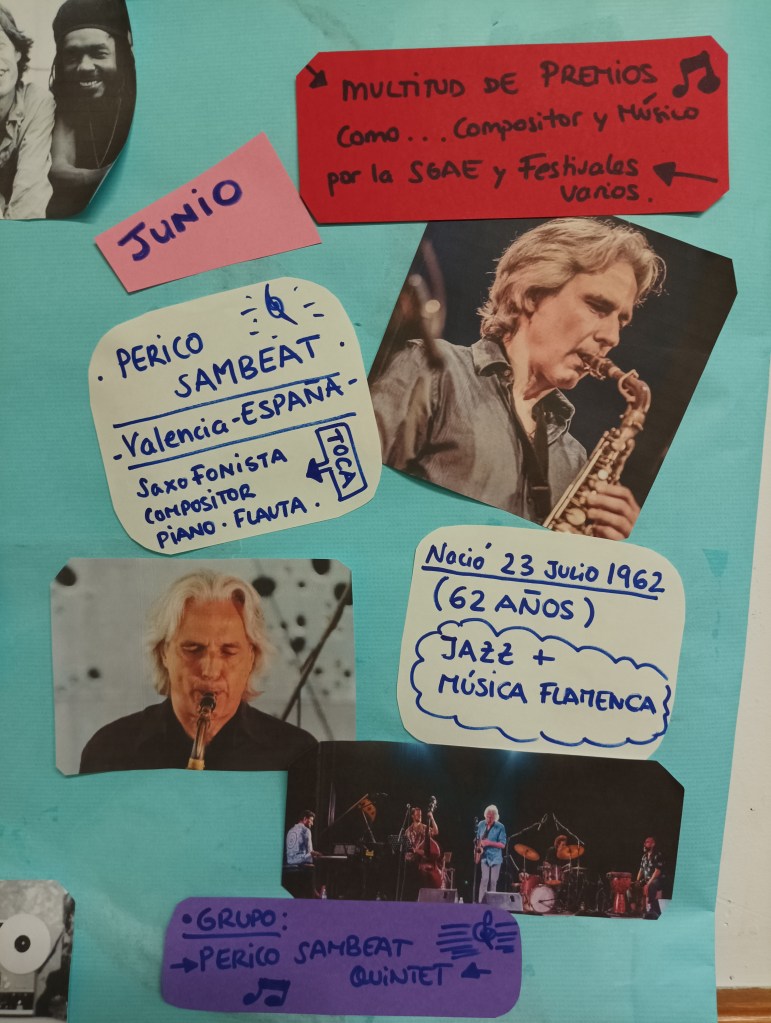 MULTITUD DE PREMIOS
Como... Compositor y Músico
por la SGAE y Festivales
varios.
JUNIO
· PERICO
SAMBEAT ·
- Valencia - ESPAÑA -
SAXOFONISTA
COMPOSITOR
PIANO · FLAUTA.
TOCA
Nació 23 Julio 1962
(62 AÑOS)
JAZZ +
MÚSICA FLAMENCA
· GRUPO:
→ PERICO SAMBEAT
QUINTET ←